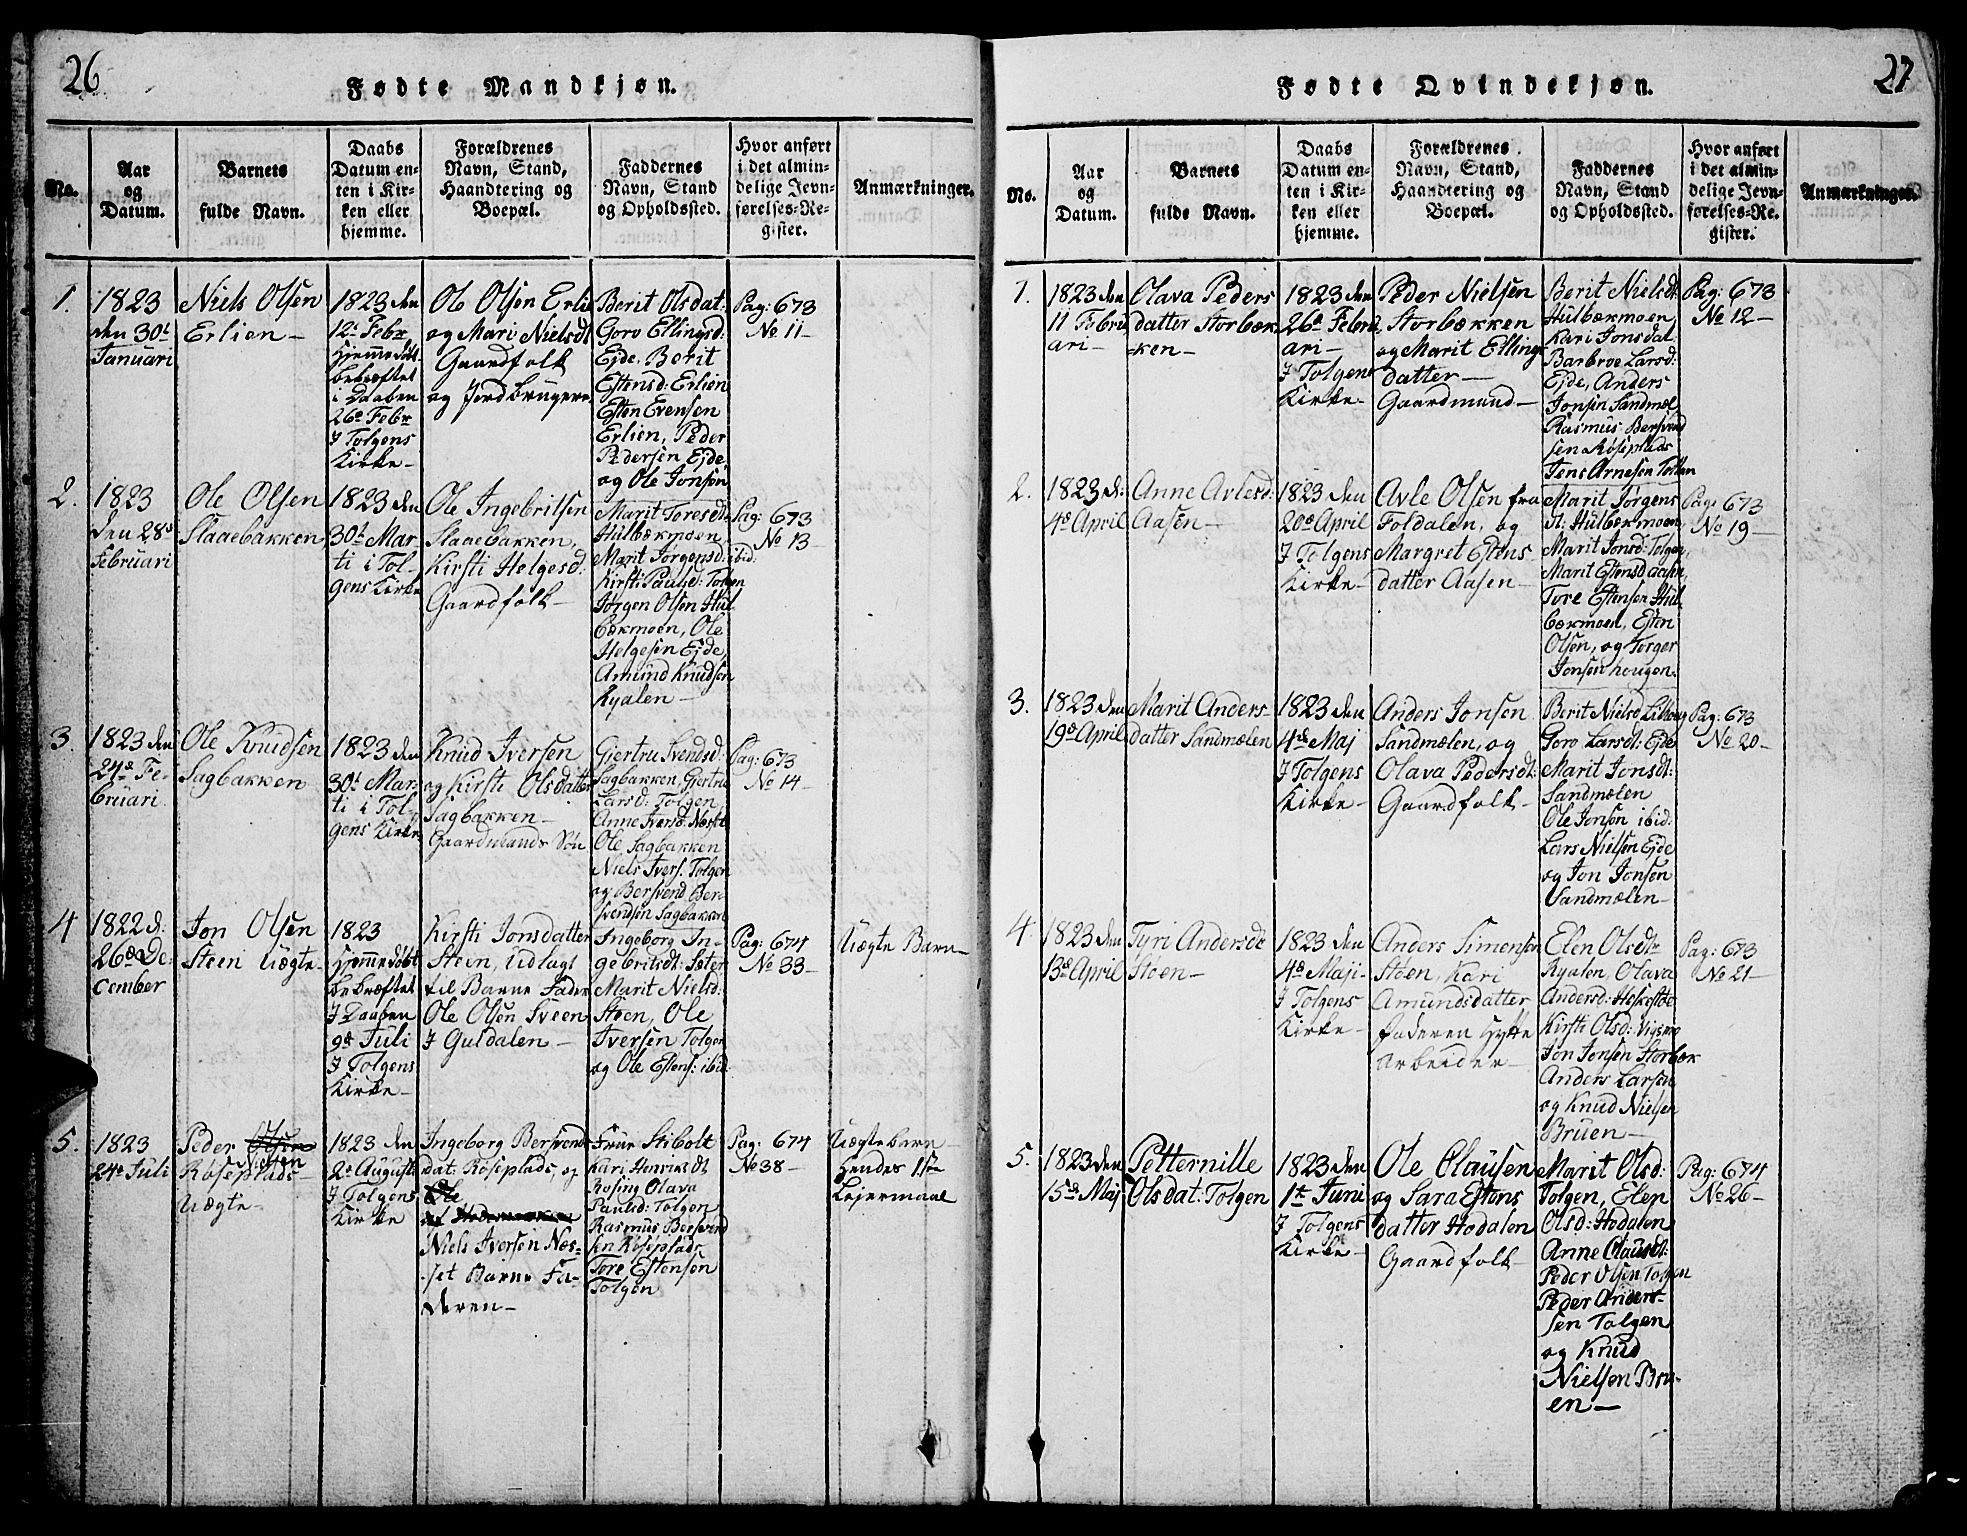 26
Fødte Mandkjøn.
No.
Aar
og
Datum.
Barnets
fulde Navn.
Daabs
Datum en-
ten i Kir-
ken eller
hjemme.
Forældrenes
Navn, Stand,
Haandtering og
Boepæl.
Faddernes
Navn, Stand
og Opholdssted.
Hvor anført
i det almin-
delige Jevn-
førelses-Re-
gister.
Anmærkninger.
1.
1823
den 30te
Januari
Niels Olsen
Erlien-
1823 den
12te Febr
hjemmedöbt
bekræftet
i Daaben
26de Febr
I Tolgens
Kirke-
Ole Olsen Erlie
og Mari Nielsdt
Gaardfolk
og Jordbrugere
Berit Olsdat:
Goro Ellingsd:
Ejde, Berit
Estensd: Erlien
Esten Evensen
Erlien, Peder
Pedersen Ejde
og Ole Jonsen
Pag: 673
No 11-
2.
1823
den 28de
Februari
Ole Olsen
Slaaebakken
1823 den
30te Mar-
ti i Tol-
gens Kirke
Ole Ingebritsen
Slaaebakken,
Kirsti Helgesd:
Gaardfolk-
Marit Toresdt
Hulbækmoen
Marit Jørgensd: ibid:
Kirsti Paulsd: Tolgen
Jørgen Olsen Hul
bækmoen, Ole
Helgesen Ejde,
Amund Knudsen
Ryalen-
Pag: 673
No 13-
3.
1823 den
24de Fe-
bruari
Ole Knudsen
Sagbakken
1823 den
30te Mar-
ti i Tol-
gens Kirke
Knud Iversen
og Kirste Olsdatter
Sagbakken-
Gaardmands Søn
Giertru Svendsd:
Sagbakken, Giertru
Larsd: Tolgen
Anne Iversd: Næset
Ole Sagbakken
Niels Ivers: Tolgen
og Bersvend Ber-
svendsen Sagbakken
Pag: 673
No 14-
4
1822 d:
26de De-
cember
Jon Olsen
Steen Uægte-
1823
hjemmedöbt
bekræftet
I Daaben
9de Juli
I Tolgens
Kirke-
Kirsti Jonsdatter
Steen, Udlagt
til Barne Fader
Ole Olsen Sveen
I Guldalen-
Ingeborg In-
gebritsdt: Sæter
Marit Nielsd:
Steen, Ole
Iversen Tolgen
og Ole Estens: ibid:
Pag: 674
No 33-
Uægte Barn-
5.
1823
24de Juli
Peder Olsen
Nielsen
Roseplads-
Uægte-
1823 den
2de August
I Tolgens
Kirke
Ingeborg Bersvend
dat. Roseplads, og
Ole
Niels Iversen Næs-
set Barne Fa-
deren-
Frue Stibolt
Kari Henriksdt
Rosing Olava
Paulsd: Tolgen
Rasmus Bersvend
sen Roseplads
Tore Estensen
Tolgen
Pag: 674
No 38-
Uægte barn
hendes 1ste
Leiermaal
27
Fødte Qvindekjøn.
No.
Aar
og
Datum.
Barnets
fulde Navn.
Daabs
Datum en-
ten i Kir-
ken eller
hjemme.
Forældrenes
Navn, Stand,
Haandtering og
Boepæl.
Faddernes
Navn, Stand
og Opholdssted.
Hvor anført
i det almin-
delige Jevn-
førelses-Re-
gister.
Anmærkninger.
1.
1823 den
11 Febru
ari-
Olava Peders
datter Storbæk
ken-
1823 den
26de Febru
ari-
I Tolgens
Kirke-
Peder Nielsen
Storbækken
og Marit Ellings
datter-
Gaardmand-
Berit Nielsdt
Hulbækmoen,
Kari Jonsdat
Barbroe Larsd:
Ejde, Anders
Jonsen Sandmæl
Rasmus Bersvend
sen Roseplads
Jens Arnesen Tollan
Pag: 673
No 12-
2.
1823 d:
4de April
Anne Avlesd:
Aasen-
1823 den
20de April
I Tolgens
Kirke-
Avle Olsen fra
Foldalen, og
Margret Estens
datter Aasen-
Marit Jørgens
d: Hulbækmoen,
Marit Jonsd: Tolgen,
Marit Estensd Aasen,
Tore Estensen Hul
bækmoen, Esten
Olsen, og Torger
Jonsen hougen-
Pag: 673
No 19-
3.
1823 den
19de April
Marit Anders-
datter Sandmælen
1823 den
4de Maj
I Tolgens
Kirke-
Anders Jonsen
Sandmælen, og
Olava Pedersdt:
Gaardfolk-
Berit Nielsd
Goro Larsdt: Ejde
Marit Jonsdt:
Sandmælen
Ole Jonsen ibid:
Lars Nielsen Ejde
og Jon Jonsen
Sandmælen-
Pag: 673
No 20-
4.
1823 den
13de April
Tyri Andersdt
Støen-
1823 den
4de Maji-
I Tolgens
Kirke-
Anders Simensen
Støen, Kari
Amundsdatter
faderen Hytte
arbeider-
Elen Olsdtr
Ryalen, Olava
Andersd:
Kirsti Olsd: Vigsmo
Jon Jonsen Storbæk
Anders Larsen
og Knud Nielsen
Bruen-
Pag: 673
No 21-
5.
1823 den
15de Maj
Petternille
Olsdat: Tolgen
1823 den
1te Juni
I Tolgens
Kirke-
Ole Clausen
og Sara Estens
datter Hodalen
Gaardfolk-
Marit Olsd:
Tolgen, Elen
Olsd: Hodalen
Anne Clausdt:
Peder Olsen Tolgen
Peder Anders-
sen Tolgen
og Knud
Nielsen Bru-
en-
Pag: 674
No 26-